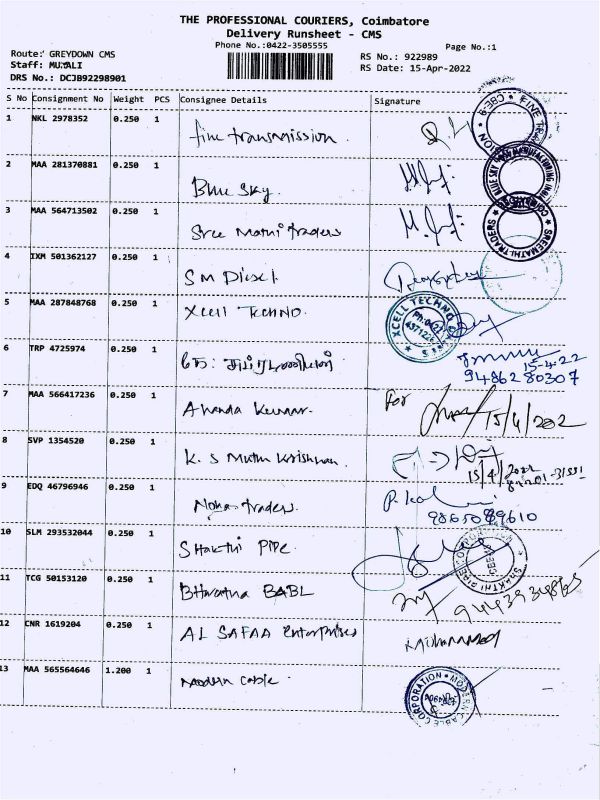 THE PROFESSIONAL COURIERS, Coimbatore
Delivery Runsheet - CMS
Phone No.:0422-3505555
Page No.:1
Route: GREYDOWN CMS
RS No.: 922989
Staff: MURALI
RS Date: 15-Apr-2022
DRS No.: DCJB92298901
S No Consignment No Weight PCS Consignee Details Signature
1 NKL 2978352 0.250 1 fine transmission.
2 MAA 281370881 0.250 1 Blue sky.
3 MAA 564713502 0.250 1 Sree Mathi traders
4 IXM 501362127 0.250 1 SM Diesel.
5 MAA 287848768 0.250 1 Xcell TECHNO.
XCELL TECHNO
6 TRP 4725974 0.250 1 கே: சுப்ரமணியன்
15-4-22
94862 80307
7 MAA 566417236 0.250 1 Ananda Kumar. For 15/4/202
8 SVP 1354520 0.250 1 K. S Muthu Krishnan.
15/4/2022
9 EDQ 46796946 0.250 1 Noha traders.
10 SLM 293532044 0.250 1 SHAKTHI PIPE.
SHAKTHI PIPE CORPORATION
11 TCG 50153120 0.250 1 Bharatha BABL
12 CNR 1619204 0.250 1 AL SAFAA Enterprises Mohammed
13 MAA 565564646 1.200 1 Modern cable.
MODERN CABLE CORPORATION